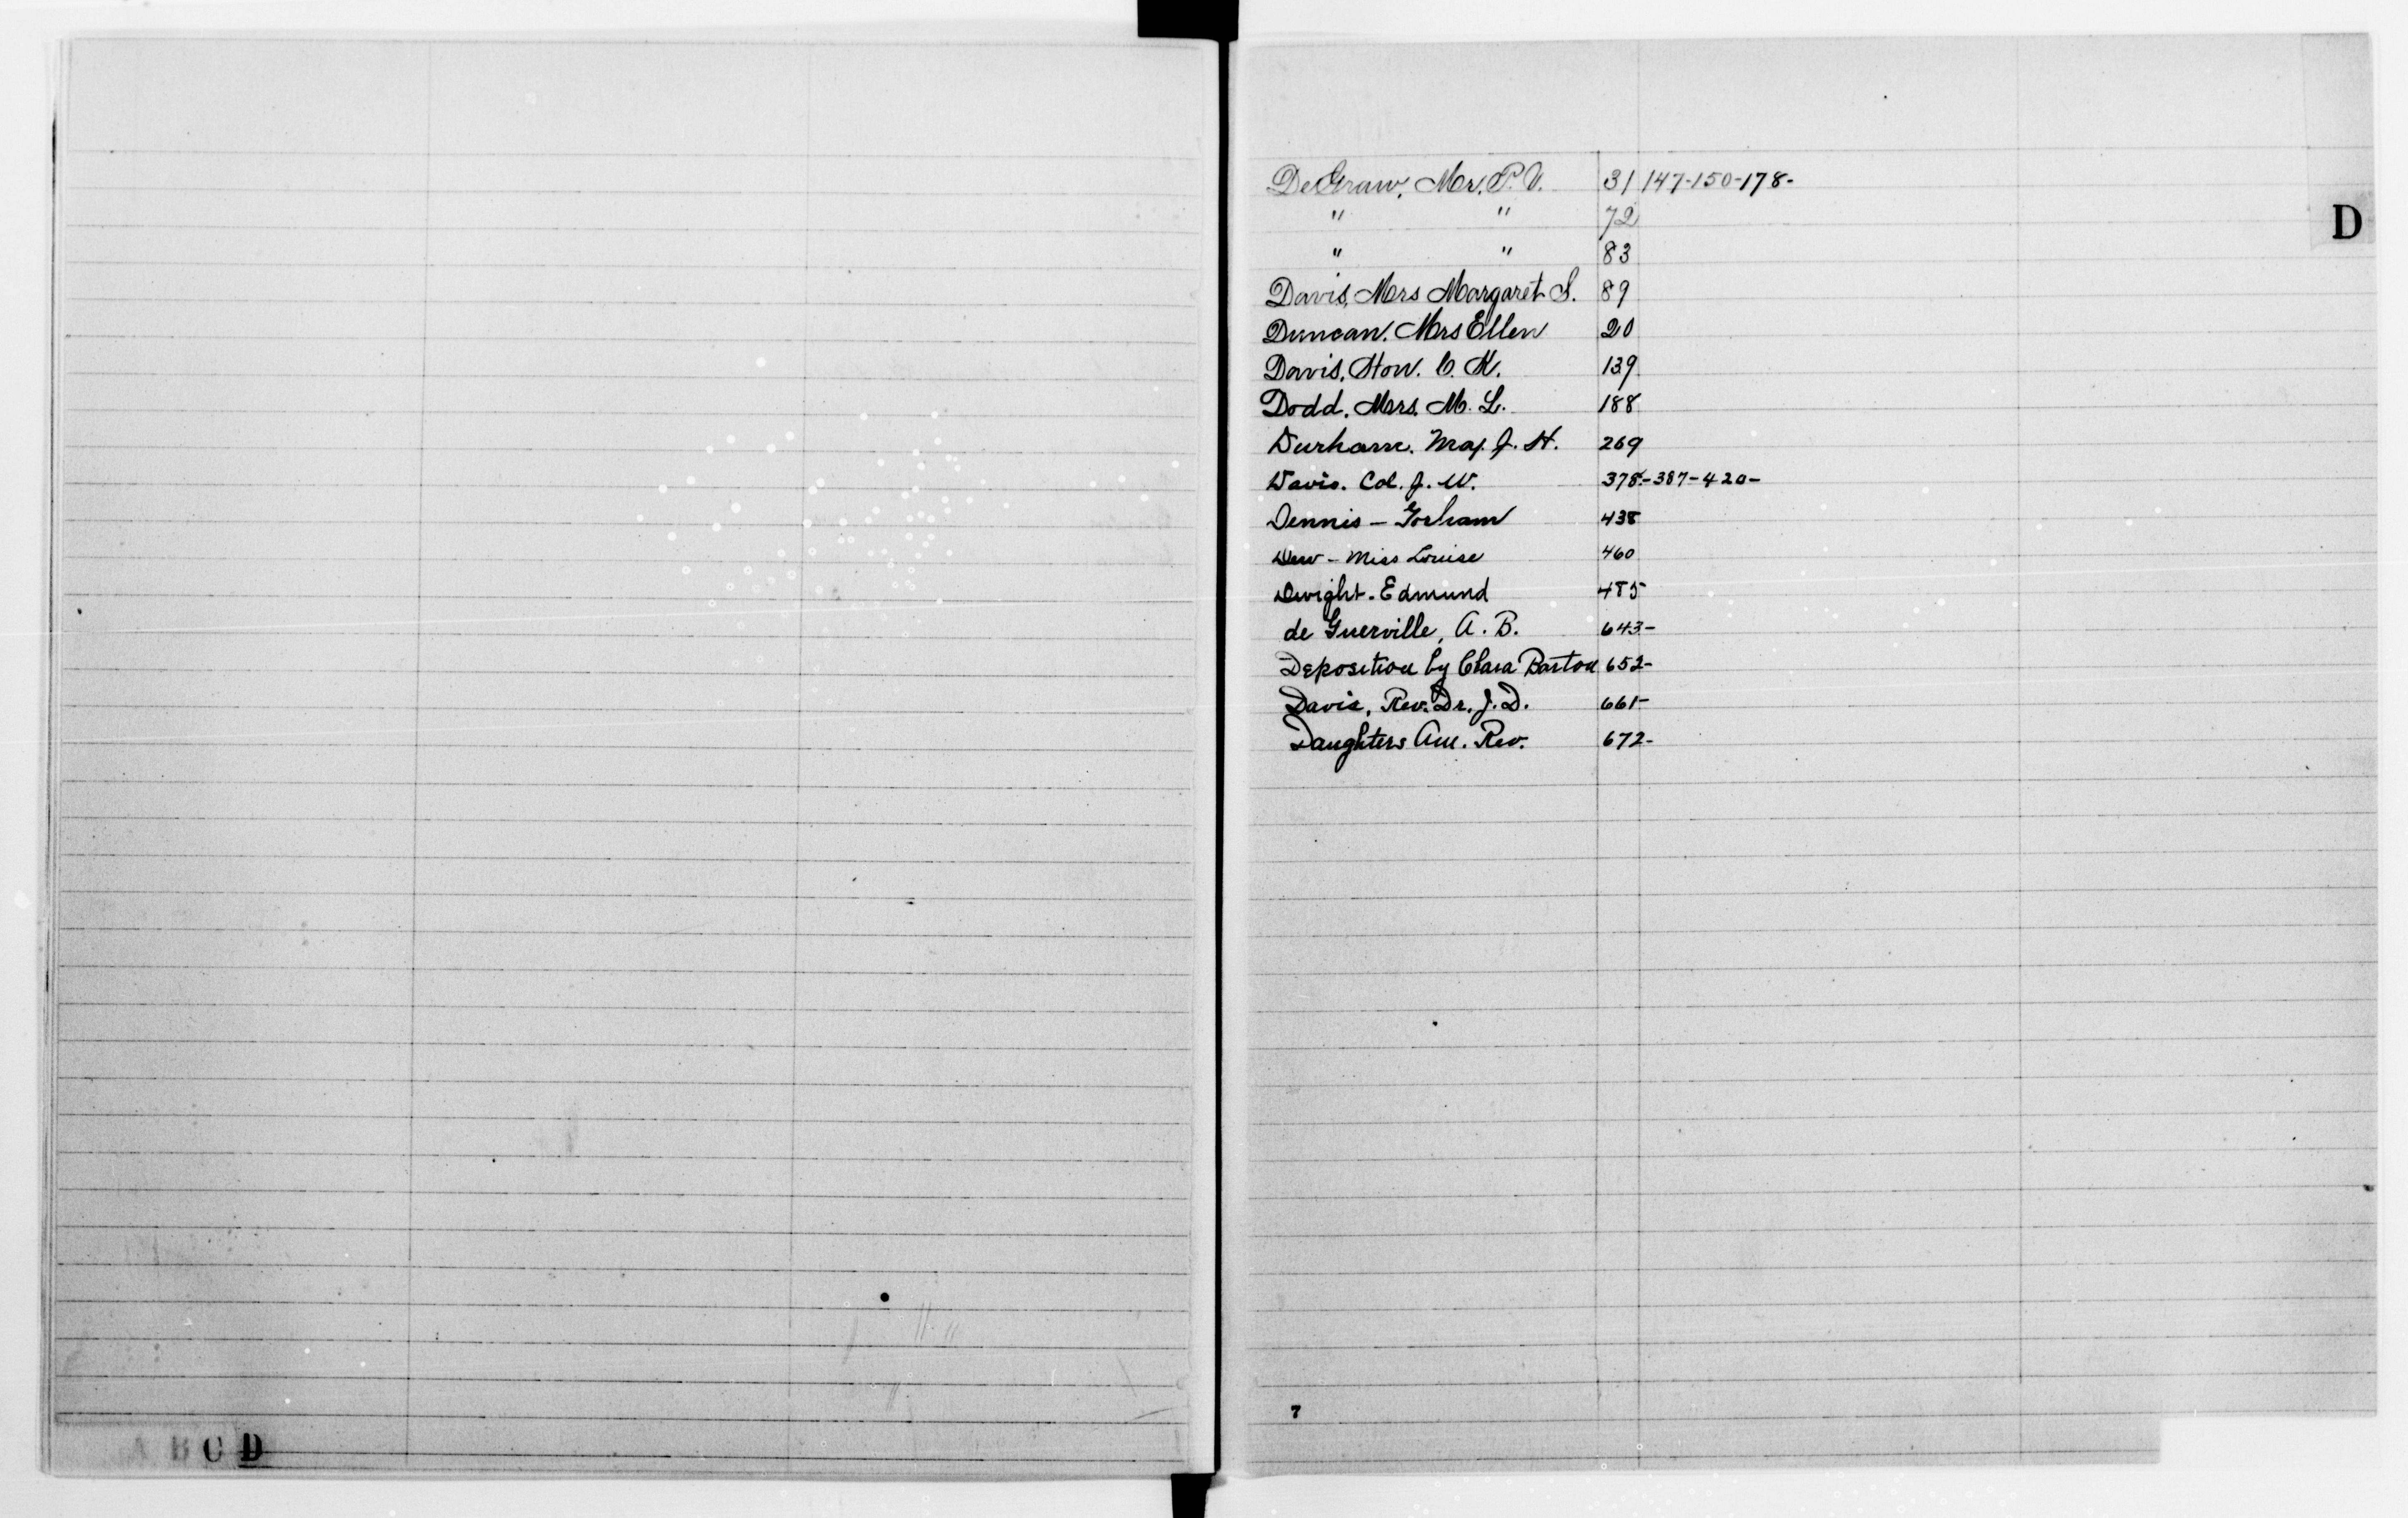 A B C D
D
DeGraw, Mr. P. V. 31 147-150-178-
" " 72
" " 83
Davis, Mrs Margaret S. 89
Duncan. Mrs Ellen 20
Davis, Hon. C. K. 139
Dodd. Mrs. M. L. 188
Durham. Maj. J. H. 269
Davis. Col. J. W. 378-387-420-
Dennis - Gorham 438
Dew - Miss Louise 460
Dwight - Edmund 485
de Guerville, A. B. 643-
Deposition by Clara Barton 652-
Davis, Rev. Dr. J. D. 661-
Daughters Am. Rev. 672-
7